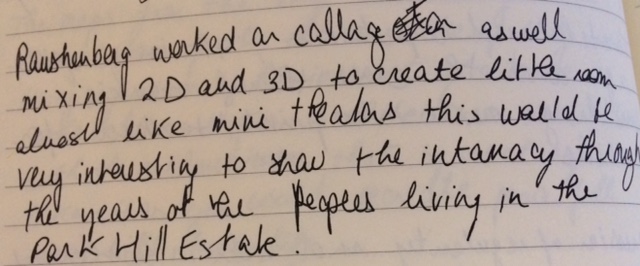 Raushenberg worked on callag aswell
mixing 2D and 3D to create little room
almost like mini theatars this would be
very interesting to show the intamacy through
the years of the Peoples living in the
Park Hill Estate.